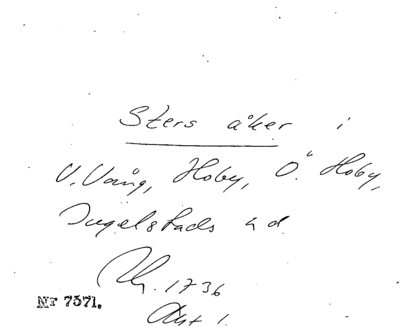 Sters åker i
V. Vång, Hoby, Ö. Hoby,
Ingelstads hd
1736
Akt 1.
Nr 7371.